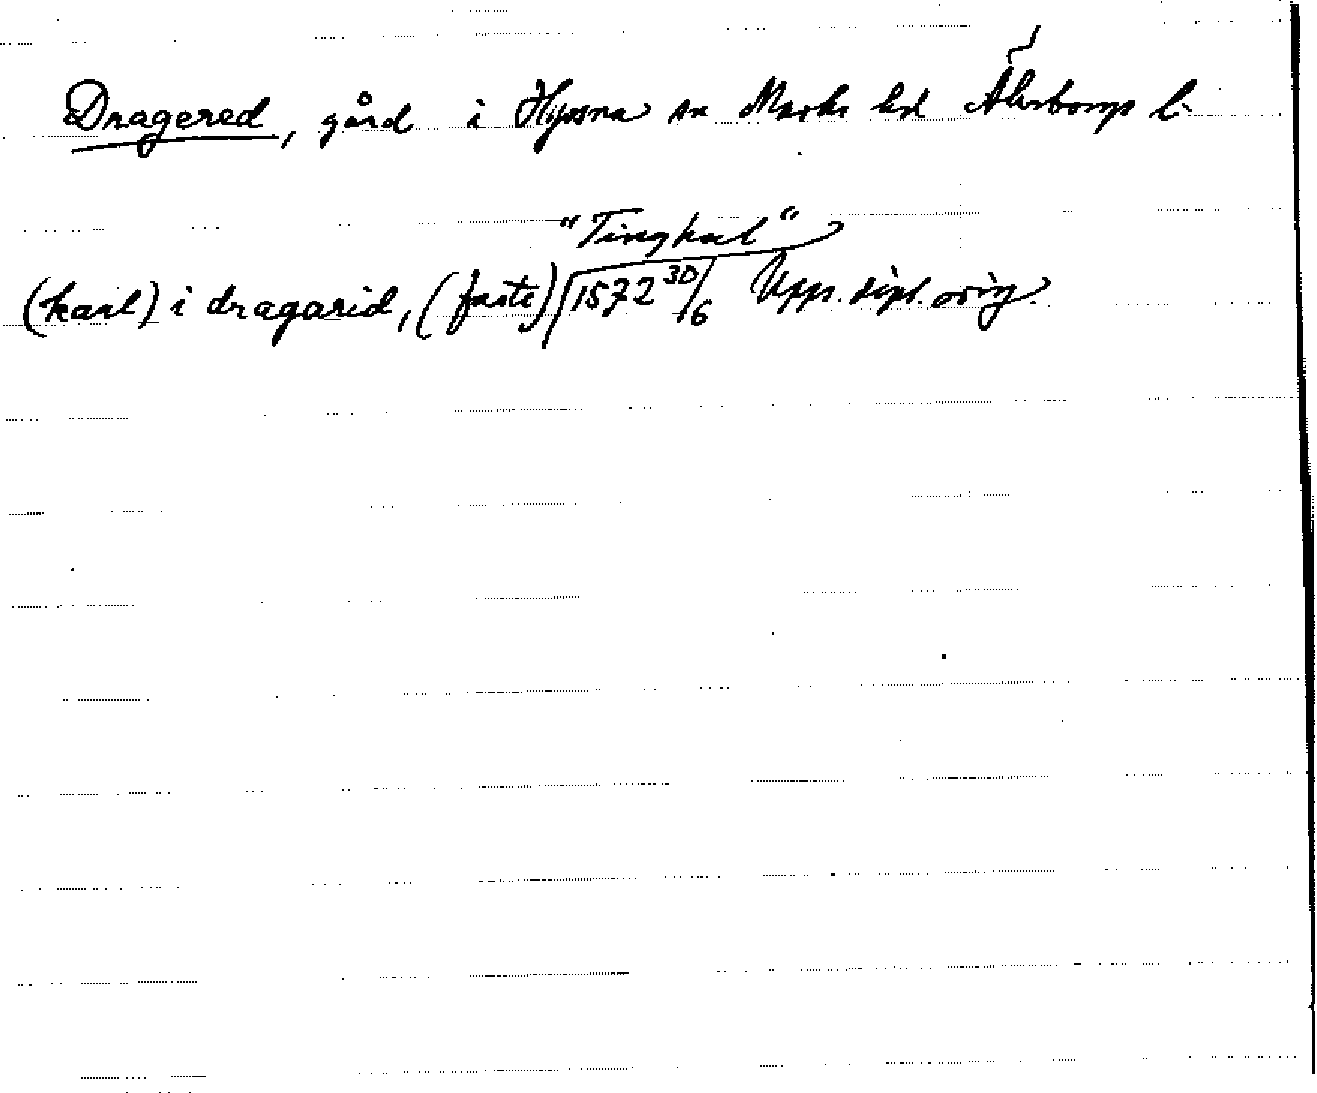 Dragered, gård i Hyssna sn Marks hd Älvsborgs l.
"Tinghul"
(karl) i dragarid, (faste) 1572 30/6 Upps. dipl. orig.